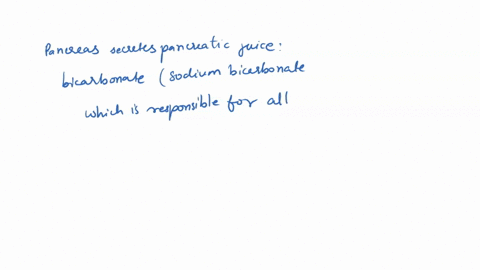 Pancreas secretes pancreatic juice:
bicarbonate (sodium bicarbonate
which is responsible for all